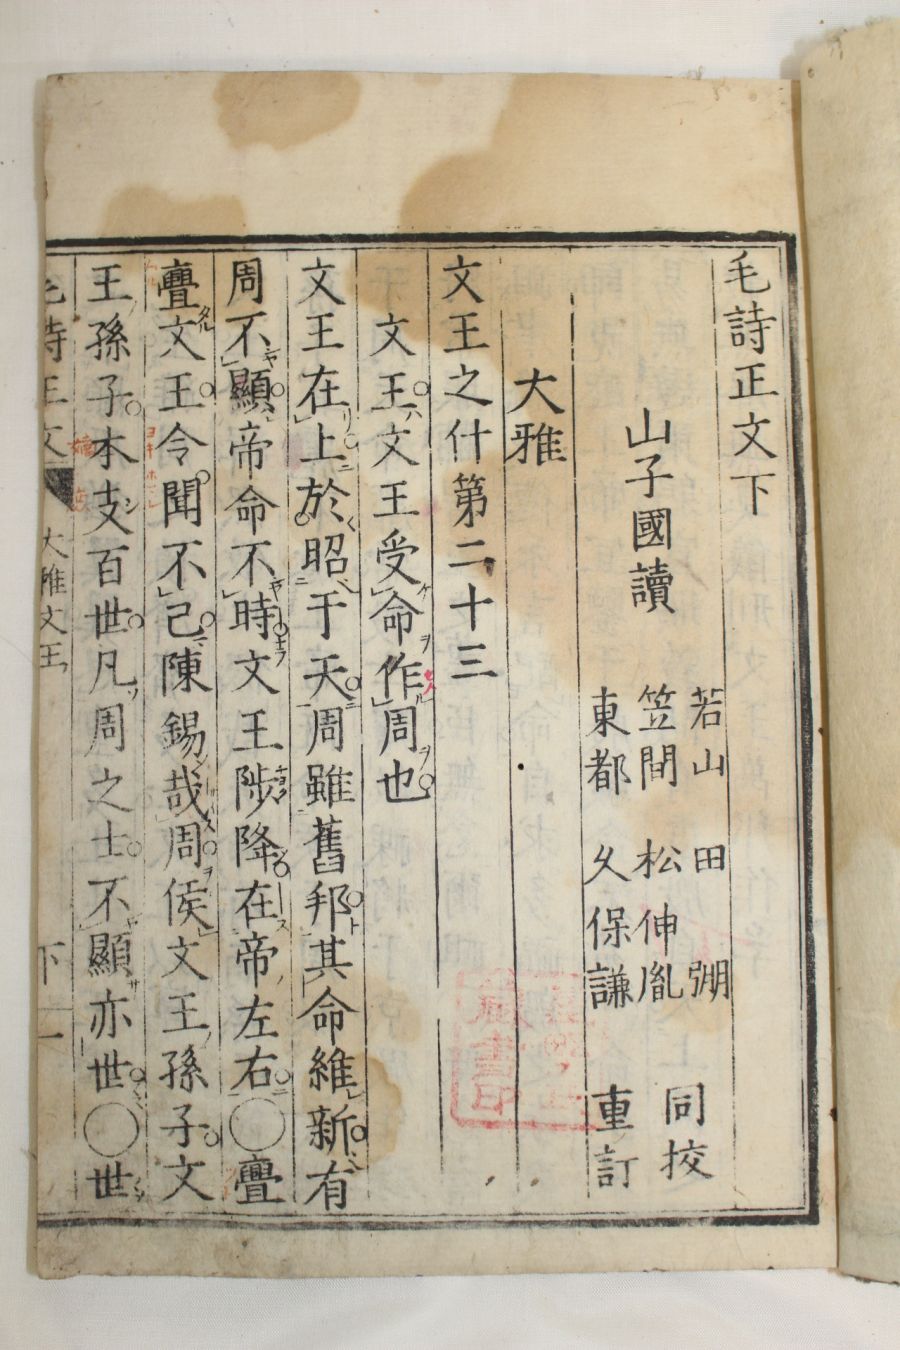 毛詩正文下
山子國讀
若山 田 弸
笠間 松伸胤 同挍
東都 久保謙 重訂
大雅
文王之什第二十三
文王文王受命作周也
文王在上於昭于天周雖舊邦其命維新有
周不顯帝命不時文王陟降在帝左右◯亹
亹文王令聞不已陳錫哉周侯文王孫子文
王孫子本支百世凡周之士不顯亦世◯世
毛詩正文 大雅文王 下 一
藏書印